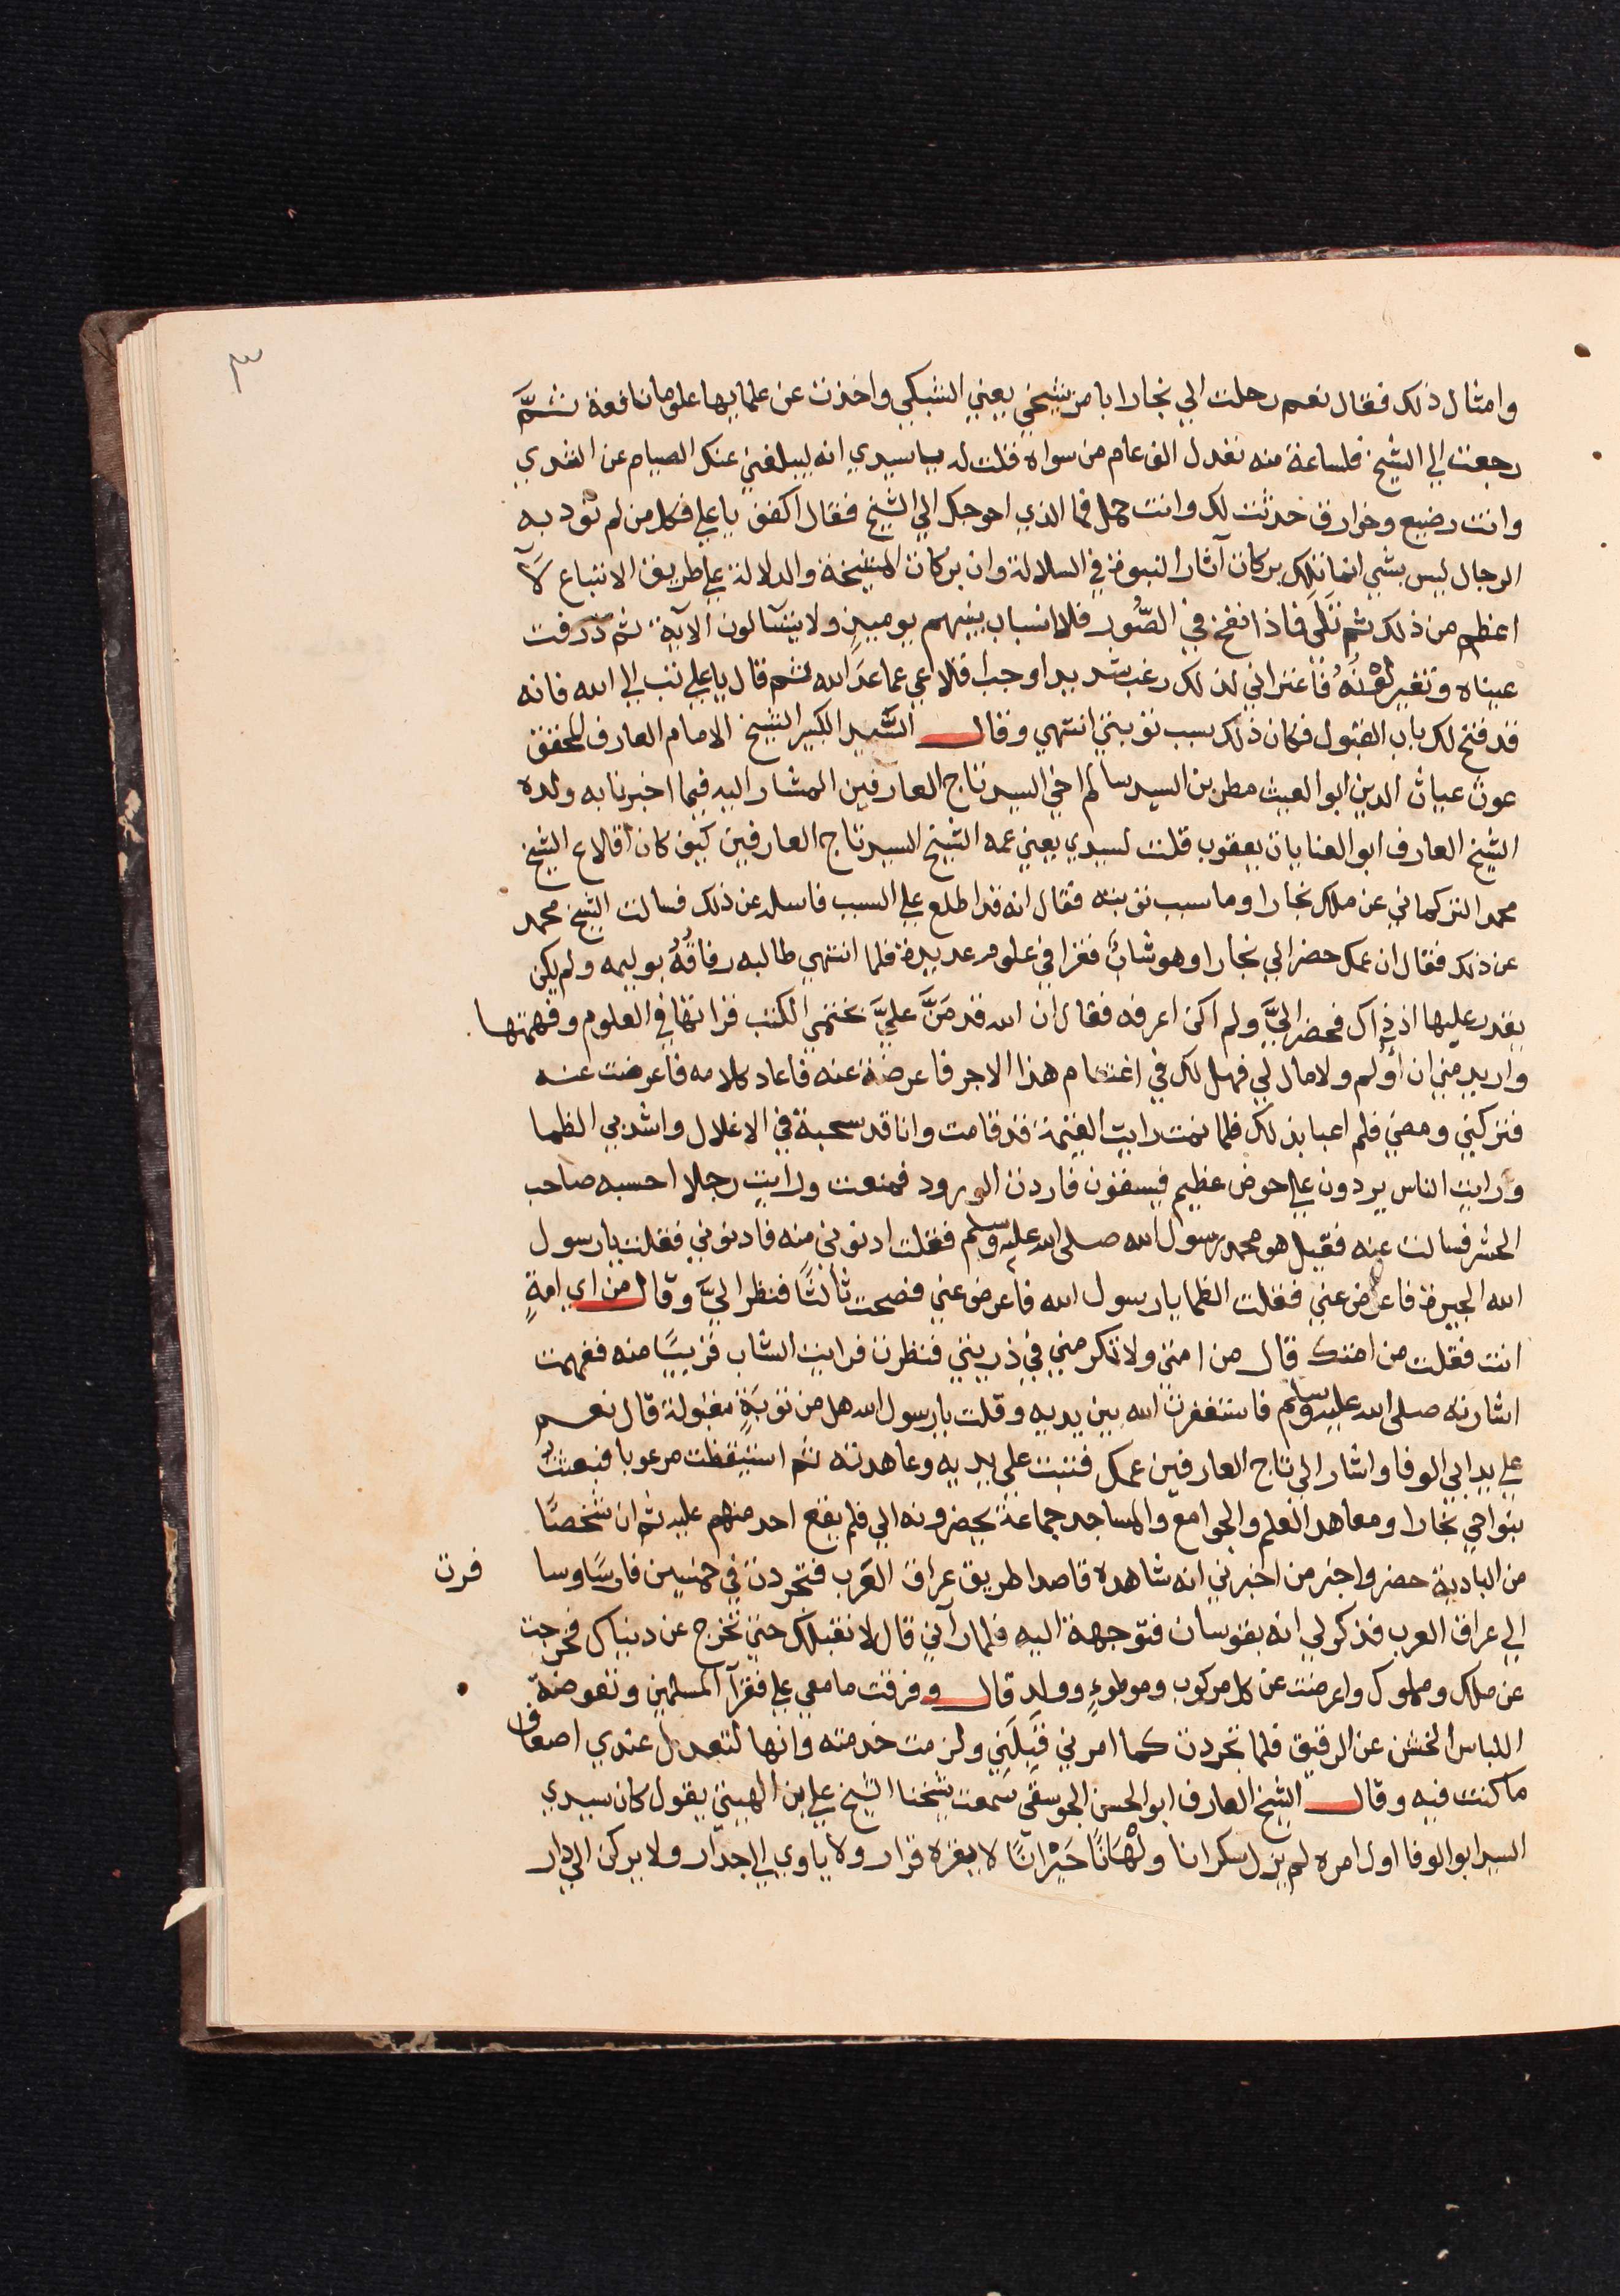 ٣
وامثال ذلك فقال نعم رحلت الي بخارا بامر شيخي يعني الشبكي واخذت عن علمايها علوما نافعة ثمَّ
رجعت الي الشيخ فلساعة منه تعدل الف عام من سواه فقلت له يا سيدي انه ليبلغني عنك الصيام عن الثدي
وانت رضيع وخوارق حدثت لك وانت حمل فما الذي احوجك الي الشيخ فقال اكفف يا علي فكل من لم تودبه
الرجال ليس بشي انما تلك بركات آثار النبوة في السلالة وان بركات المشيخة والدلالة علي طريق الاتباع لَآ
اعظم من ذلك ثم تلي فاذا نفخ في الصُّور فلا انساب بينهم يوميذٍ ولا يتسآلون الآية ثم ذرفت
عيناه وتغير لَوْنُهُ فاعتراني لذلك رعب شديد اوجب اقلاعي عما عدَا الله ثم قال يا علي تب الي الله فانه
قد فتح لك باب القبول فكان ذلك سبب توبتي انتهي وقال السَّيد الكبير الشيخ الامام العارف المحقق
عون عياث الدين ابو الغيث مطر بن السيد سالم اخي السيد تاج العارفين المشار اليه فيما اخبرنا به ولده
الشيخ العارف ابو العنايات يعقوب قلت لسيدي يعني عمه الشيخ السيد تاج العارفين كيف كان اقلاع الشيخ
محمد التركماني عن ملك بخارا وما سبب توبته فقال انه قد اطلع علي السبب فاسله عن ذلك فسالت الشيخ محمد
عن ذلك فقال ان عمك حضر الي بخارا وهو شابٌ فقرا في علوم عديدة فلما انتهي طالبه رفاقُهُ بوليمه ولم يكن
يقدر عليها اذ ذاك فحضر اليَّ ولم اكن اعرفه فقال ان الله قد مَنَّ عليَّ بختمي الكتب قراتها في العلوم وفهمتها
واريد مني ان أُولم ولا مال لي فهل لك في اغتنام هذا الاجر فاعرضة عنه فاعاد كلامه فاعرضت عنه
فتركني ومضي فلم اعبا بذلك فلما نمت رايت القيمة قد قامت وانا قد سحبة في الاغلال واشد بي الظما
ورايت الناس يردون علي حوض عظيم فيسقون فاردت الورود فمنعت ورايت رجلا احسبه صاحب
الحشر فسالت عنه فقيل هو محمد رسول الله صلى الله عليه وسلم فقلت ادنوني منه فادنوني فقلت يا رسول
الله الجيرة فاعرض عني فقلت الظما يا رسول الله فاعرض عني فصحت ثالثًا فنظر اليَّ وقال من اي امةٍ
انت فقلت من امتك قال من امتي ولا تكرمني في ذريتي فنظرت فرايت الشاب قريبًا منه ففهمت
اشارته صلى الله عليه وسلم فاستغفرت الله بين يديه وقلت يا رسول الله هل من توبَةٍ مقبولة قال نعم
علي يد ابي الوفا واشار الي تاج العارفين عمك فتبت علي يديه وعاهدته ثم استيقظت مرعوبا فبعثت
بنواحي بخارا ومعاهد العلم والجوامع والمساجد جماعة يحضرونه الي فلم يقع احد منهم عليه ثم ان شخصًا
من البادية حضر واخبر من اخبرني انه شاهده قاصدا طريق عراق العَرب فتجردت في خمسين فارسًا وسا فرت
الي عراق العرب فذكر لي انه بقوسان فتوجهة اليه فلما رآني قال لا نقبلك حتي تخرج عن دنياك فخرجت
عن ملك ومملوك واعرضت عن كل مركوب وموطوءٍ وولد قال وفرقت ما معي علي فقرآ المسلمين وتعوضة
اللباس الخشن عن الرقيق فلما تجردت كما امرني قَبِلَنِي ولزمت خدمته وانها لتعدل عندي اضعاف
ما كنت فيه وقال الشيخ العارف ابو الحسن الجوسقي سَمعت شيخنا الشيخ علي بن الهيتي يقول كان سيدي
السيد ابو الوفا اول امره لم يزل سكرانا ولْهَانًا حَيْرَانًا لا يقره قرار ولا ياوي الي جدار ولا يركن الي دار